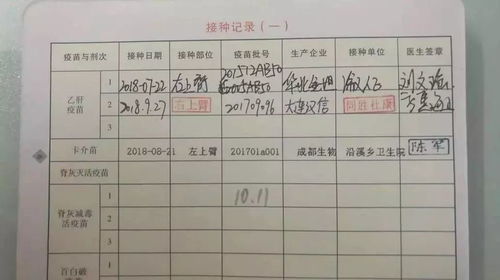 接种记录（一）
疫苗与剂次 接种日期 接种部位 疫苗批号 生产企业 接种单位 医生签章
乙肝疫苗 1 2018-07-22 右上臂
2 2018.9.27 右上臂 201709096 大连汉信
3
卡介苗 2018-08-21 左上臂 201701a001 成都生物 沿溪乡卫生院 陈军
脊灰灭活疫苗
脊灰减毒活疫苗 1 10.11
2
3
百白破 1